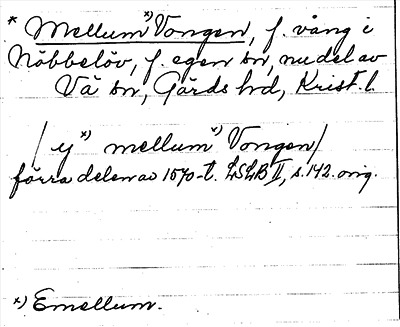 * Mellum *) Vongen, f. vång i
Nöbbelöv, f. egen sn, nu del av
Vä sn, Gärds hd, Krist. l.
/ y *) mellum *) Vongen /
förra delen av 1570-t. LSLB II, s. 142. orig.
*) Emellum.